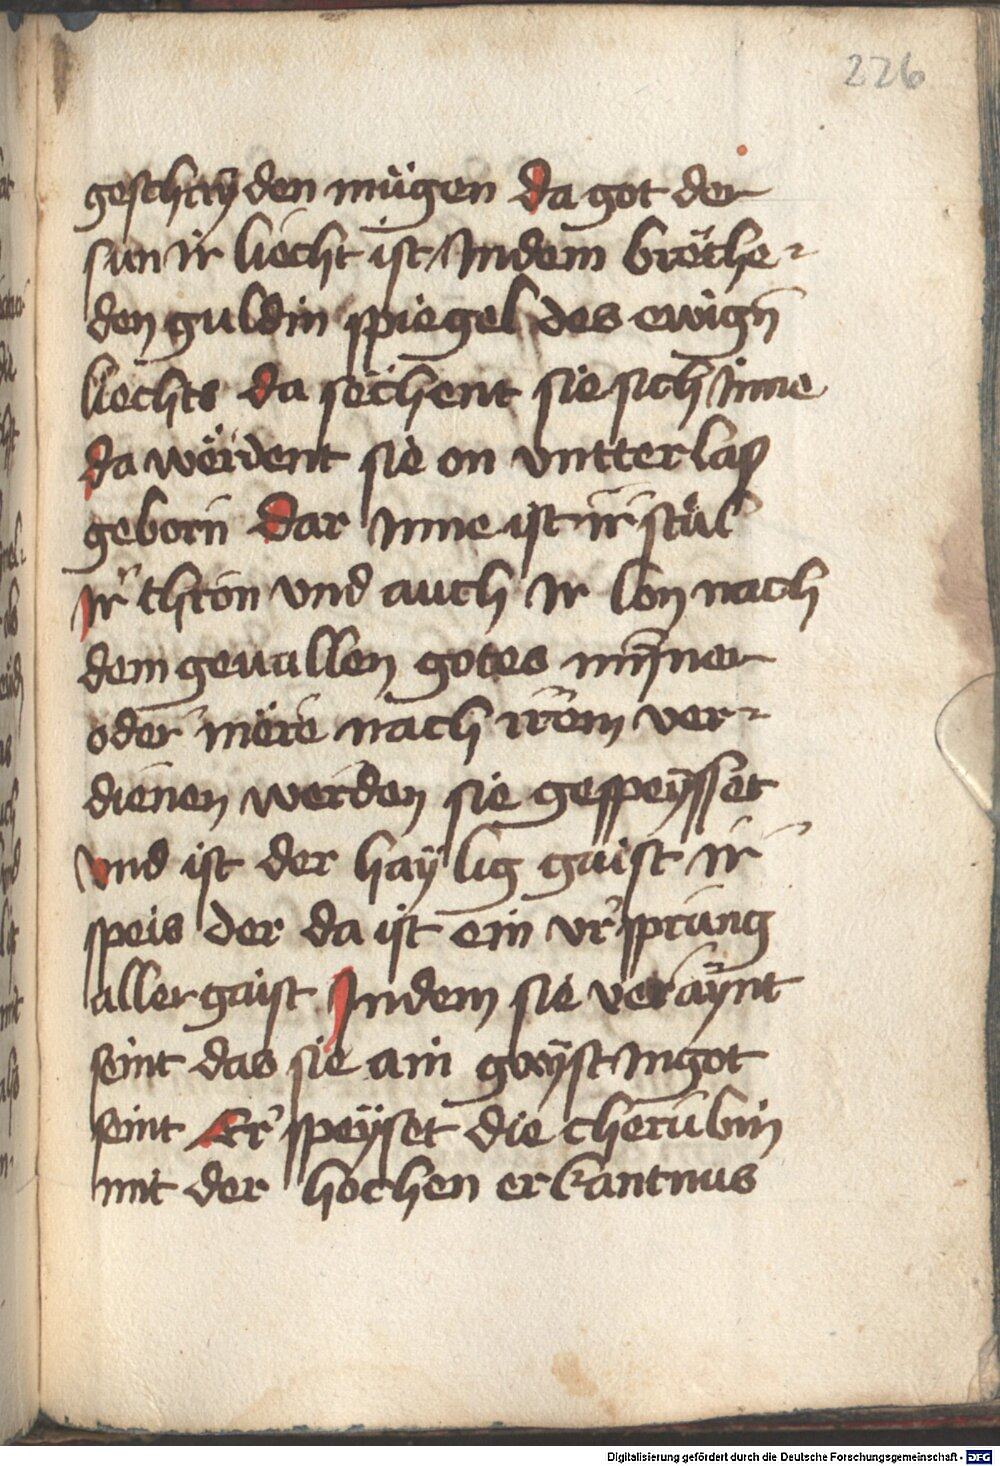 226
geschaÿden mügen da got der
sun ir liecht ist Indem breche-
den guldin spiegel des ewign̄
liechts da sechent sie sich Inne
da werdent sie on vntter lap
geborn dar Inne ist ir stul
Ir thron vnd auch Ir lon nach
dem geuallen gotes mÿner
oder mere nach irem ver-
dienen werden sie gespeÿsset
vnd ist der haÿlig gaist ir
speis der da ist ein vrsprung
aller gaist Indem sie veraÿnt
seint das sie ain gaÿst Ingot
seint Er speÿset die cherubin
mit der hochen erkantnus
Digitalisierung gefördert durch die Deutsche Forschungsgemeinschaft - DFG